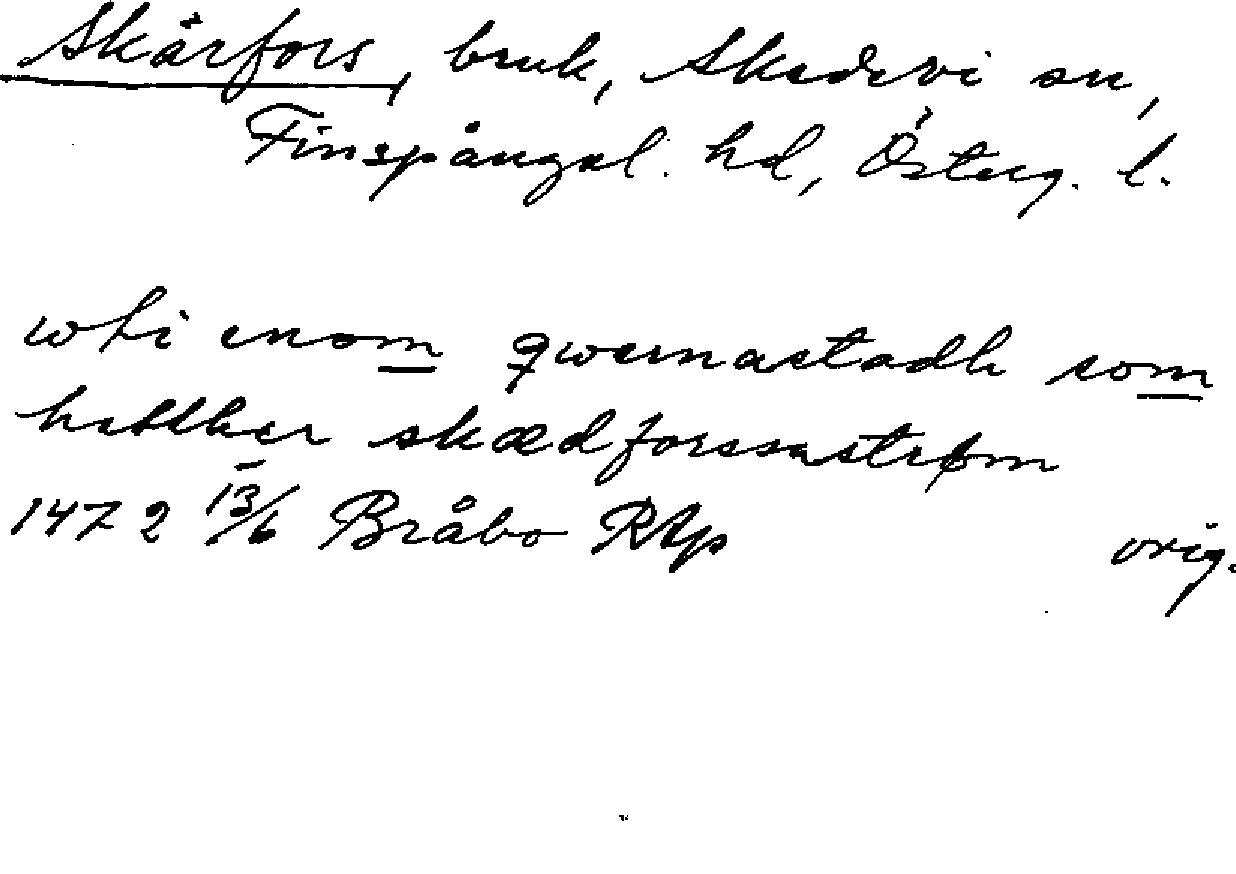 Skårfors, bruk, Skedevi sn,
Finspångal. hd, Österg. l.
wti enom qwernastadh som
hetther skædforssastrøm
1472 13/6 Bråbo RAp orig.